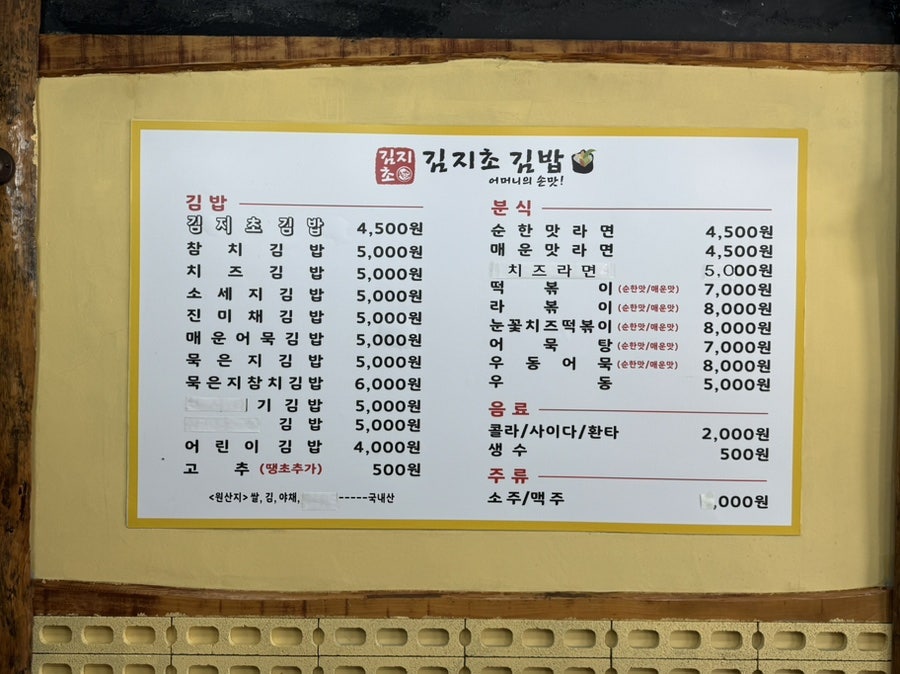 김지초
김지초 김밥
어머니의 손맛!
김밥
김지초김밥 4,500원
참치김밥 5,000원
치즈김밥 5,000원
소세지김밥 5,000원
진미채김밥 5,000원
매운어묵김밥 5,000원
묵은지김밥 5,000원
묵은지참치김밥 6,000원
기김밥 5,000원
김밥 5,000원
어린이김밥 4,000원
고추 (땡초추가) 500원
<원산지> 쌀, 김, 야채, -----국내산
분식
순한맛라면 4,500원
매운맛라면 4,500원
치즈라면 5,000원
떡볶이 (순한맛/매운맛) 7,000원
라볶이 (순한맛/매운맛) 8,000원
눈꽃치즈떡볶이 (순한맛/매운맛) 8,000원
어묵탕 (순한맛/매운맛) 7,000원
우동어묵 (순한맛/매운맛) 8,000원
우동 5,000원
음료
콜라/사이다/환타 2,000원
생수 500원
주류
소주/맥주 ,000원